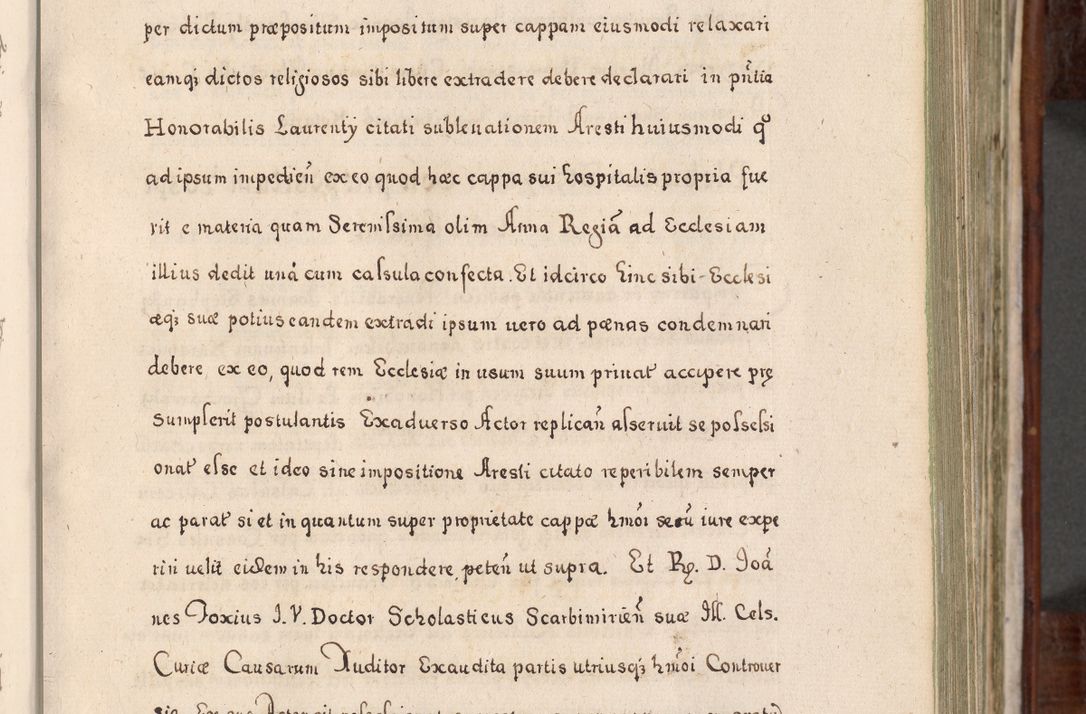 per dictum præpositum impositum super cappam eiusmodi relaxari
eamq; dictos religiosos sibi libere extradere debere declarari in pñtia
Honorabilis Laurentÿ citati subleuationem Aresti huiusmodi qō
ad ipsum impedień ex eo quod hæc cappa sui hospitalis propria fue
rit e materia quam Serenissima olim Anna Regiã ad Ecclesiam
illius dedit unà cum casula confecta. Et idcirco hinc sibi - Ecclesi
æq; suæ potius eandem extradi ipsum uero ad pœnas condemnari
debere, ex eo, quod rem Ecclesiæ in usum suum priuat̃ accipere prę
sumpserit postulantis Exaduerso Actor replicań asseruit se possessi
onat̃ esse et ideo sine impositione Aresti citato reperibilem semper
ac parat̃ si et in quantum super proprietate cappæ hmõi secũ iure expe
riri uelit eidem in his respondere, peteń ut supra. Et R̃. D. Ioã
nes Foxius I. V. Doctor Scholasticus Scarbimirień suæ Ill. Cels.
Curiæ Causarum Auditor Exaudita partis utriusq; hmõi Controuer